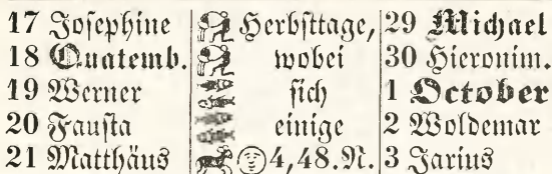 17 Josephine Herbsttage, 29 Michael
18 Quatemb. wobei 30 Hieronim.
19 Werner sich 1 October
20 Fausta einige 2 Woldemar
21 Matthäus 4,48.N. 3 Jarius